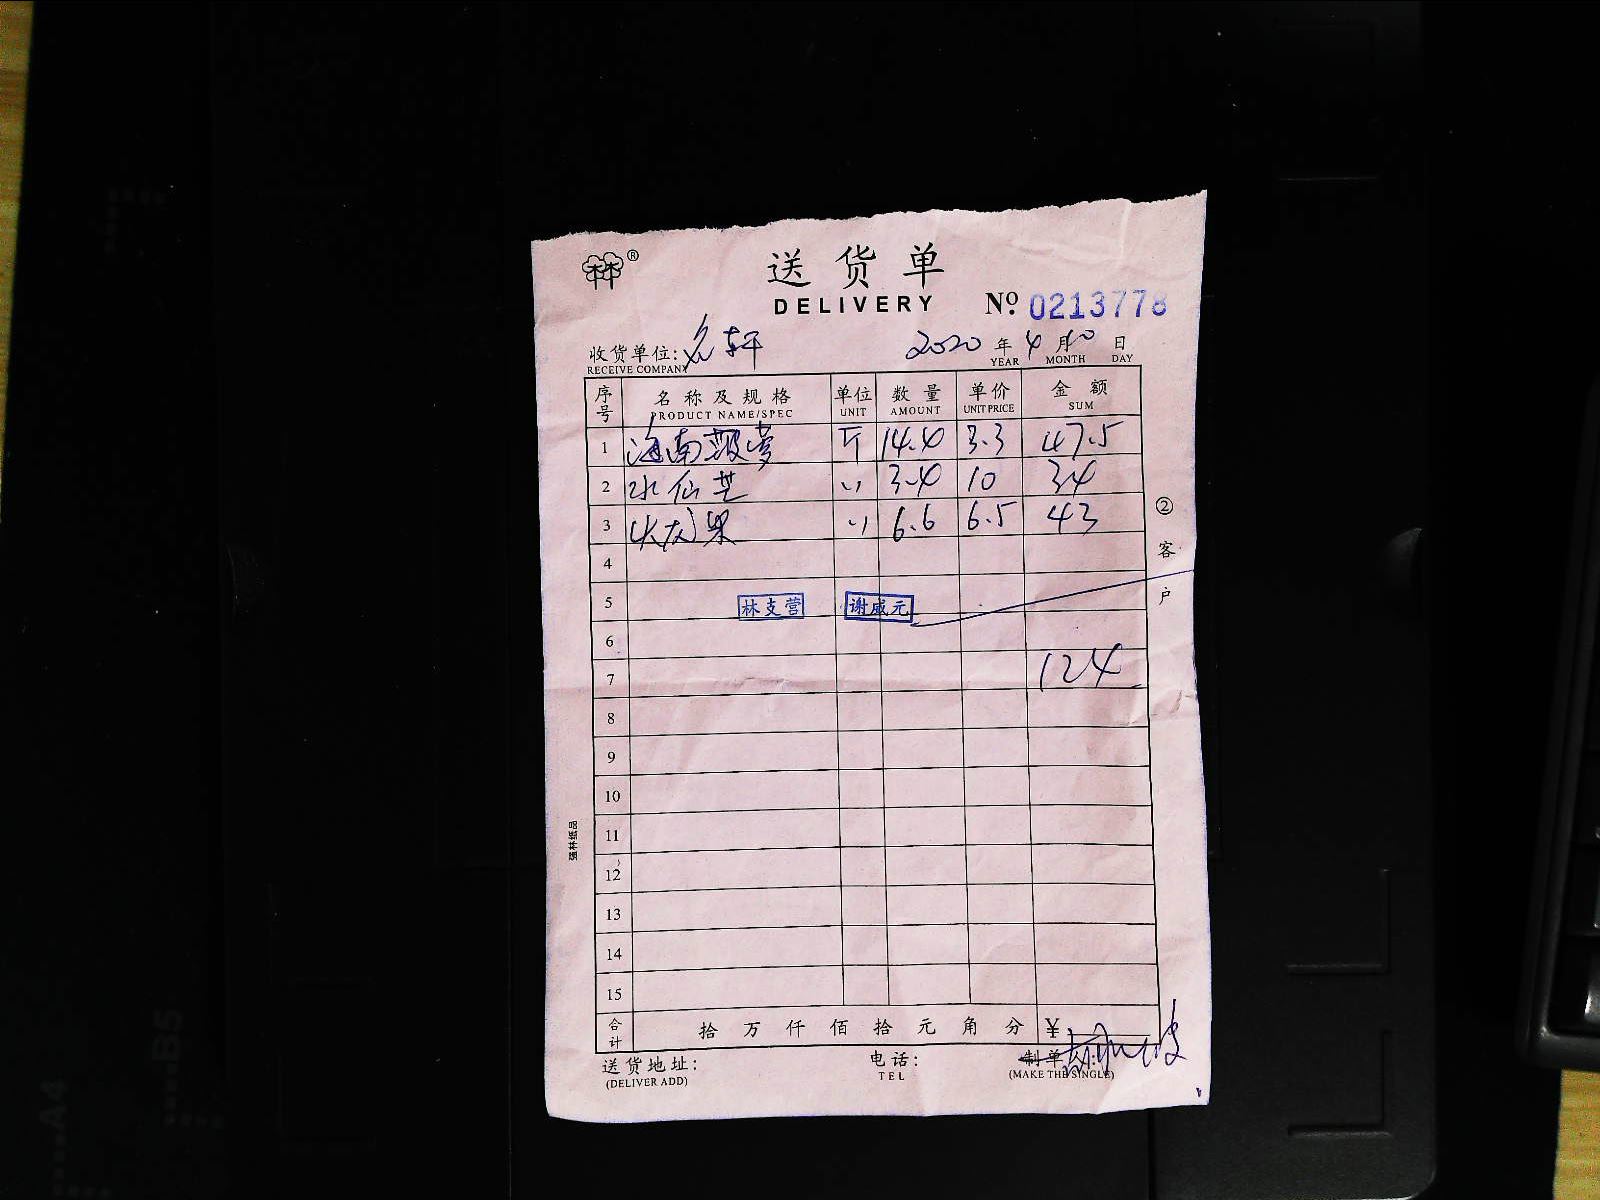 林®
送货单
DELIVERY
№ 0213778
收货单位: 名轩 2020 年 4 月 10 日
RECEIVE COMPANY YEAR MONTH DAY
序号 名称及规格 单位 数量 单价 金额
PRODUCT NAME/SPEC UNIT AMOUNT UNIT PRICE SUM
1 海南菠萝 斤 14.4 3.3 47.5
2 水仙芒 〃 3.4 10 34
3 火龙果 〃 6.6 6.5 43
4
5 林支营 谢威元
6
7 124
8
9
10
11
12
13
14
15
合计 拾 万 仟 佰 拾 元 角 分 ¥
送货地址: 电话: 制单人:
(DELIVER ADD) TEL (MAKE THE SINGLE)
②客户
强林纸品
A4
B5